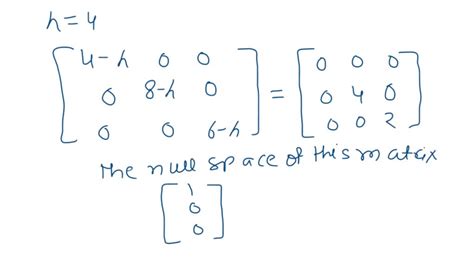 h = 4
[ 4-h 0 0 ] [ 0 0 0 ]
[ 0 8-h 0 ] = [ 0 4 0 ]
[ 0 0 6-h ] [ 0 0 2 ]
The null space of this matrix
[ 1 ]
[ 0 ]
[ 0 ]